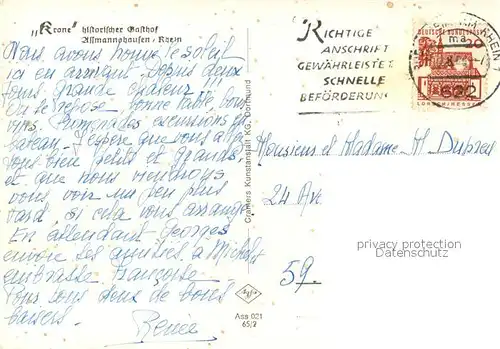 „Krone" historischer Gasthof
Assmannshausen / Rhein
Nous avons trouvé le soleil
ici en arrivant. Depuis deux
jours grande chaleur
On se repose, bonne table, bons
vins. Promenades excursions en
bateau. J'espère que vous allez
tous bien petits et grands,
et que nous viendrons
vous voir un peu plus
tard, si cela vous arrange.
En attendant Georges
envoie ses amitiés à Michel,
embrasse Françoise.
Pour vous deux de bons
baisers.
Renée
Cramers Kunstanstalt KG, Dortmund
Ass 021
65/2
RICHTIGE
ANSCHRIFT
GEWÄHRLEISTET
SCHNELLE
BEFÖRDERUNG
DEUTSCHE BUNDESPOST
20
LORSCH/HESSEN
622
Monsieur et Madame M Duprez
24 Av
59.
privacy protection
Datenschutz